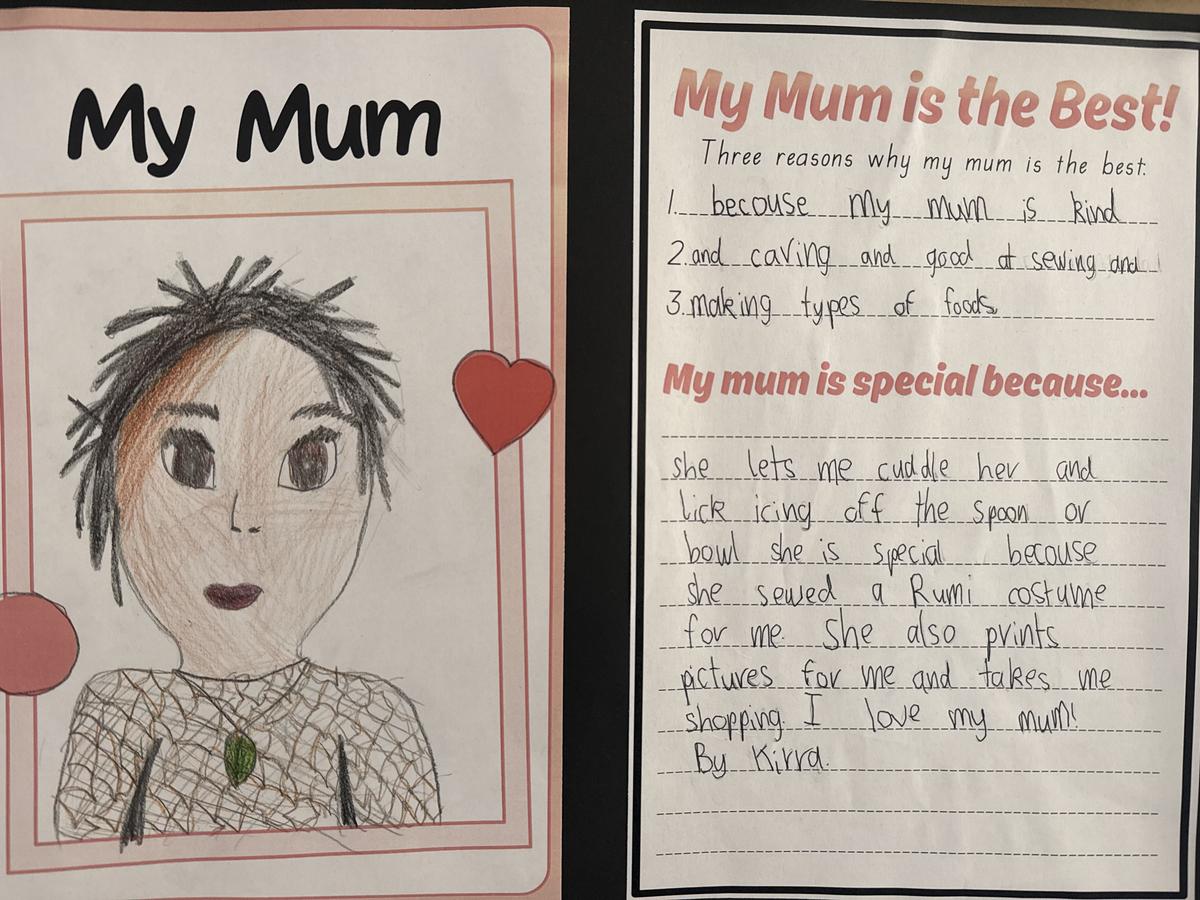 My Mum
My Mum is the Best!
Three reasons why my mum is the best:
1. becouse my mum is kind
2. and caring and good at sewing and
3. making types of foods
My mum is special because...
she lets me cuddle her and
lick icing off the spoon or
bowl she is special becouse
she sewed a Rumi costume
for me. She also prints
pictures for me and takes me
shopping. I love my mum!
By Kirra.